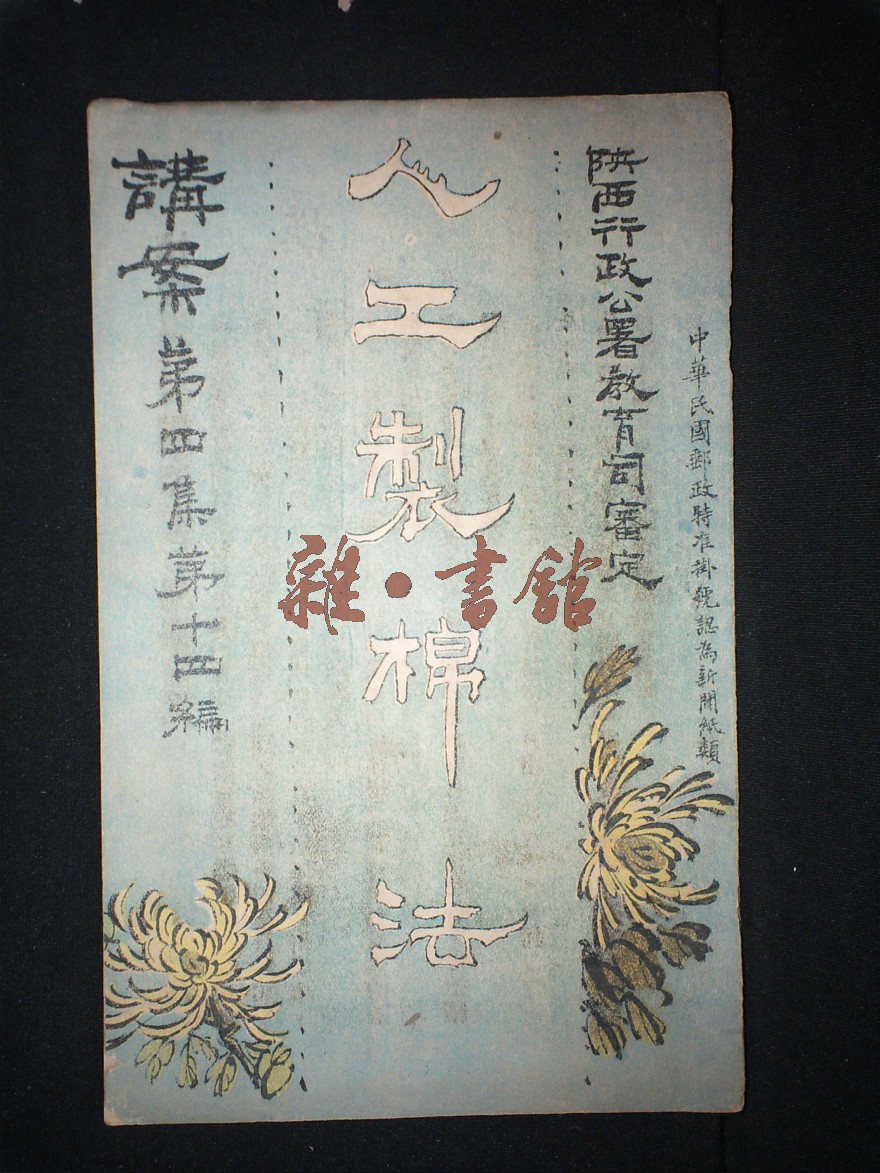 中華民國郵政特准掛號認為新聞紙類
陝西行政公署教育司審定
人工製棉法
講案第四集第十四編
雜·書館